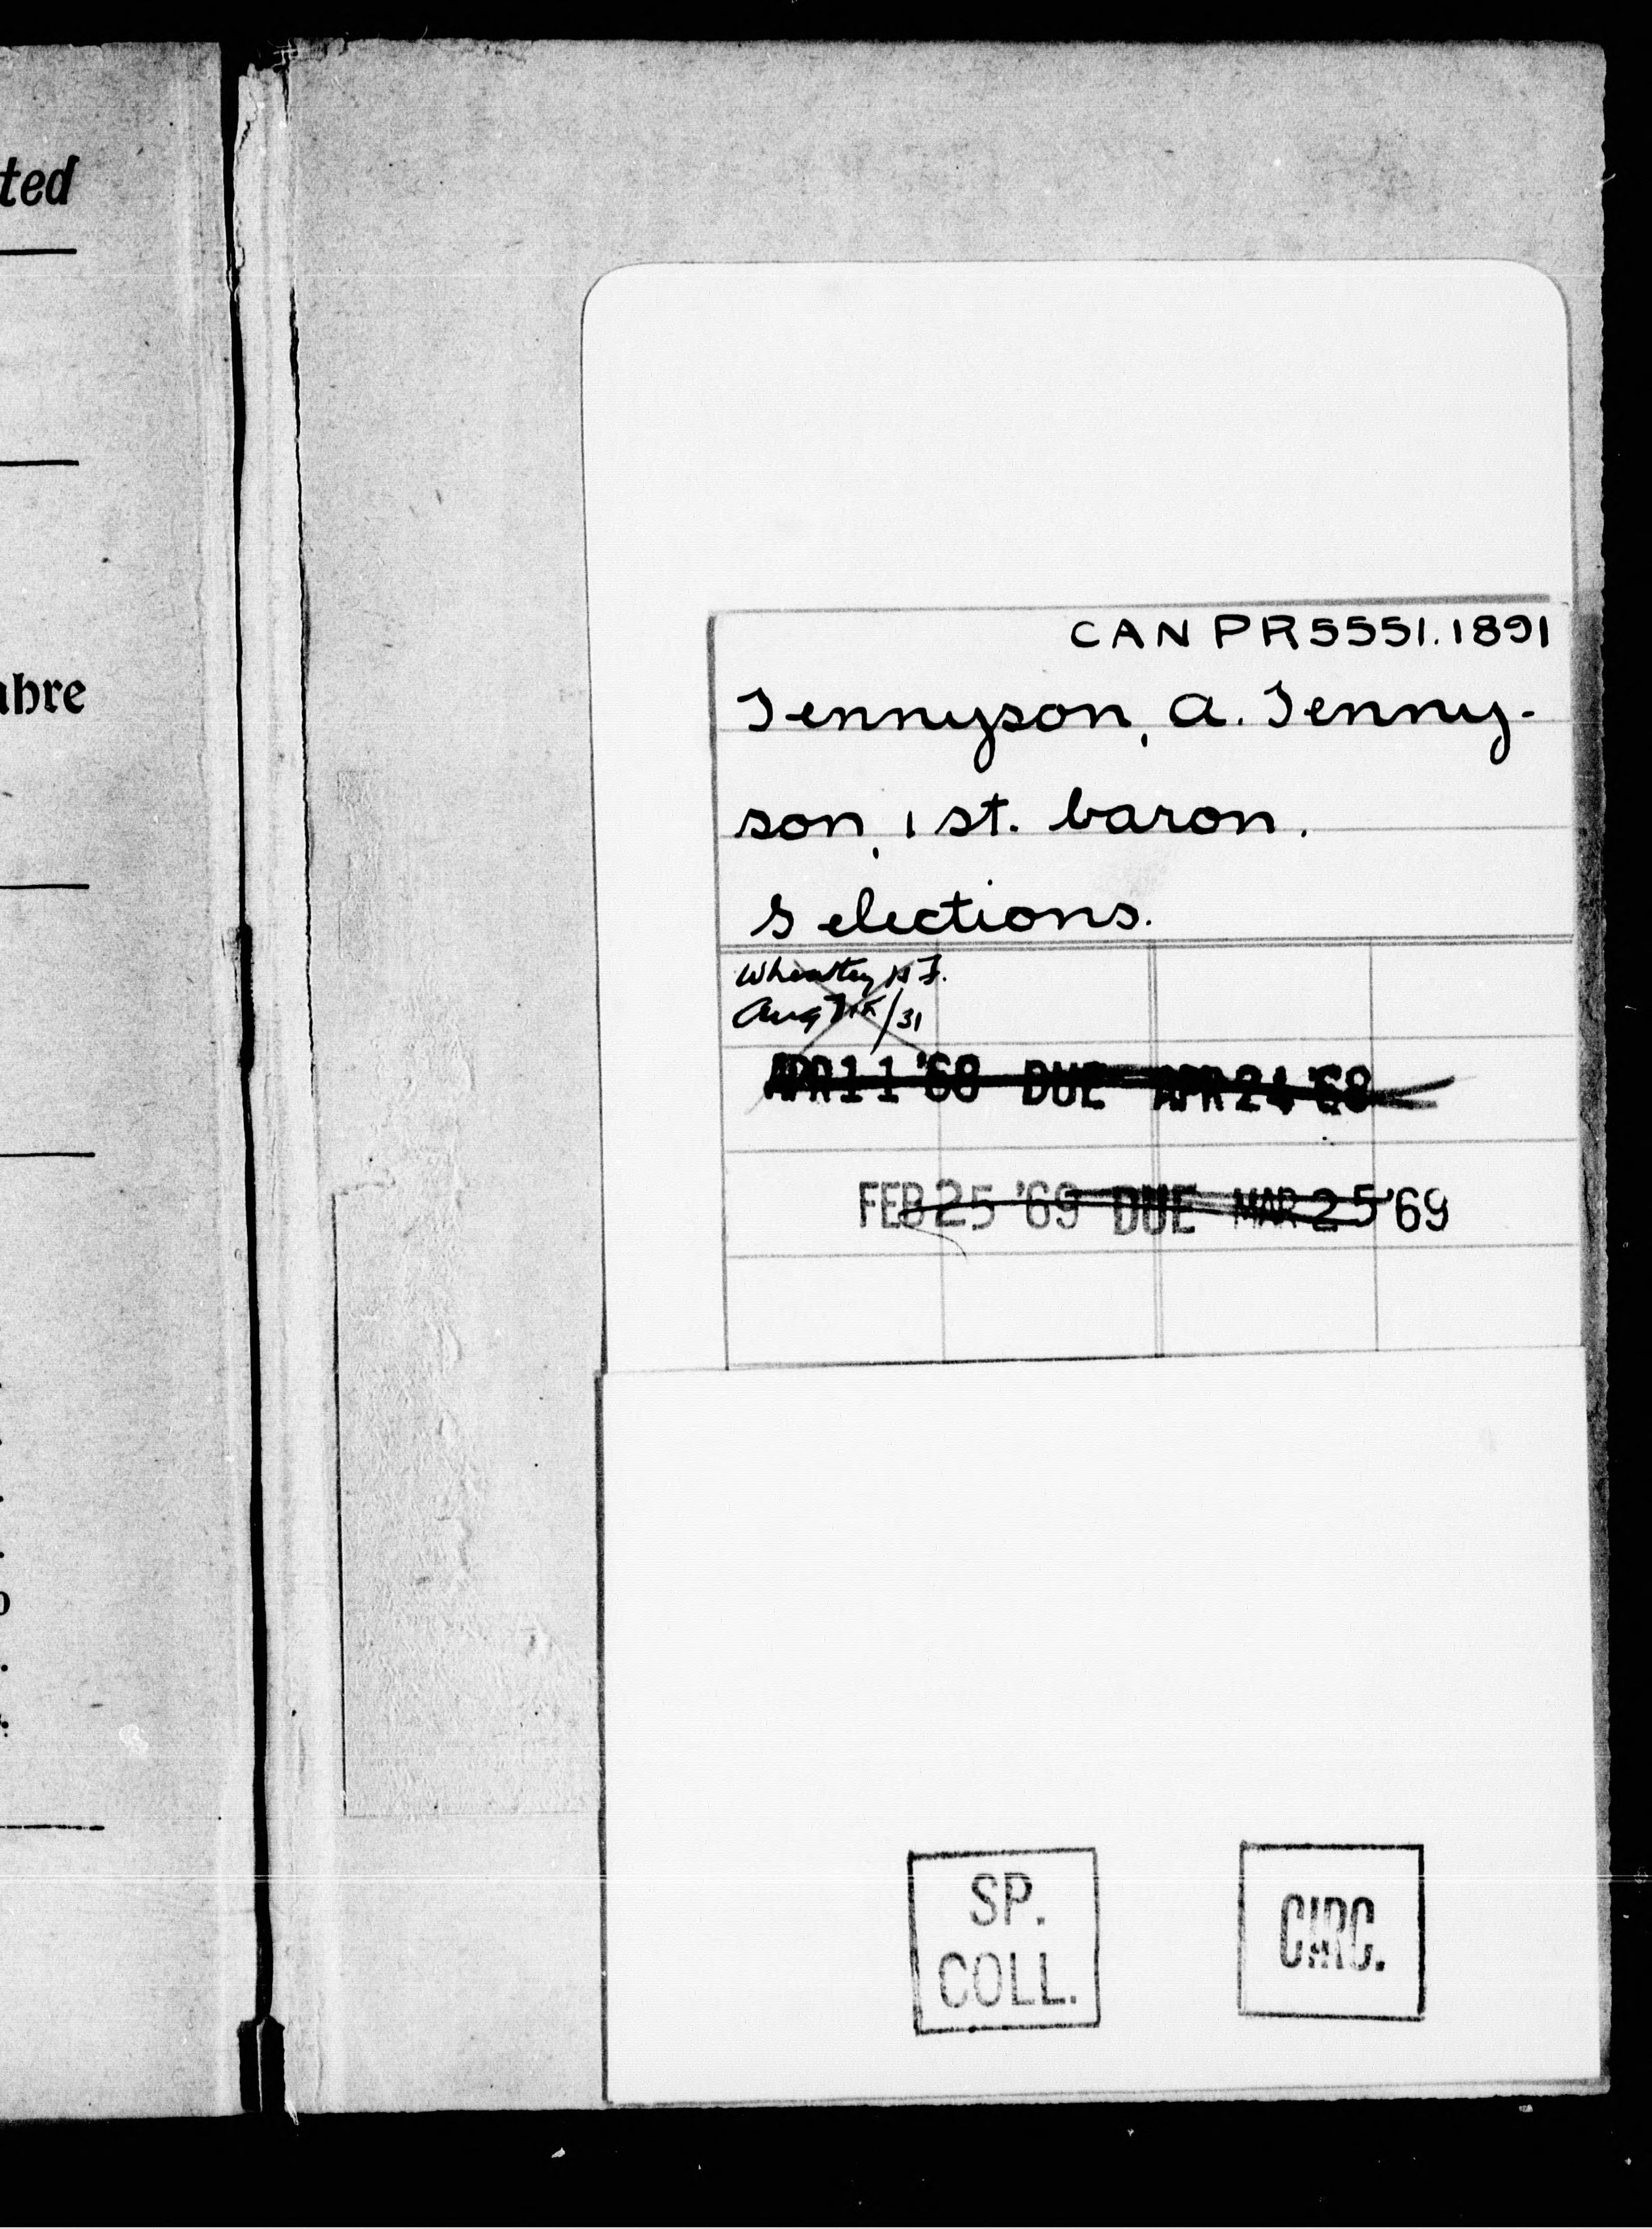 ted
ahre
CAN PR5551.1891
Tennyson, A. Tenny-
son, 1st. baron.
Selections.
Aug
/31
APR 11 '68 DUE APR 24 '68
FEB 25 '69 DUE MAR 25 '69
SP.
COLL.
CIRC.